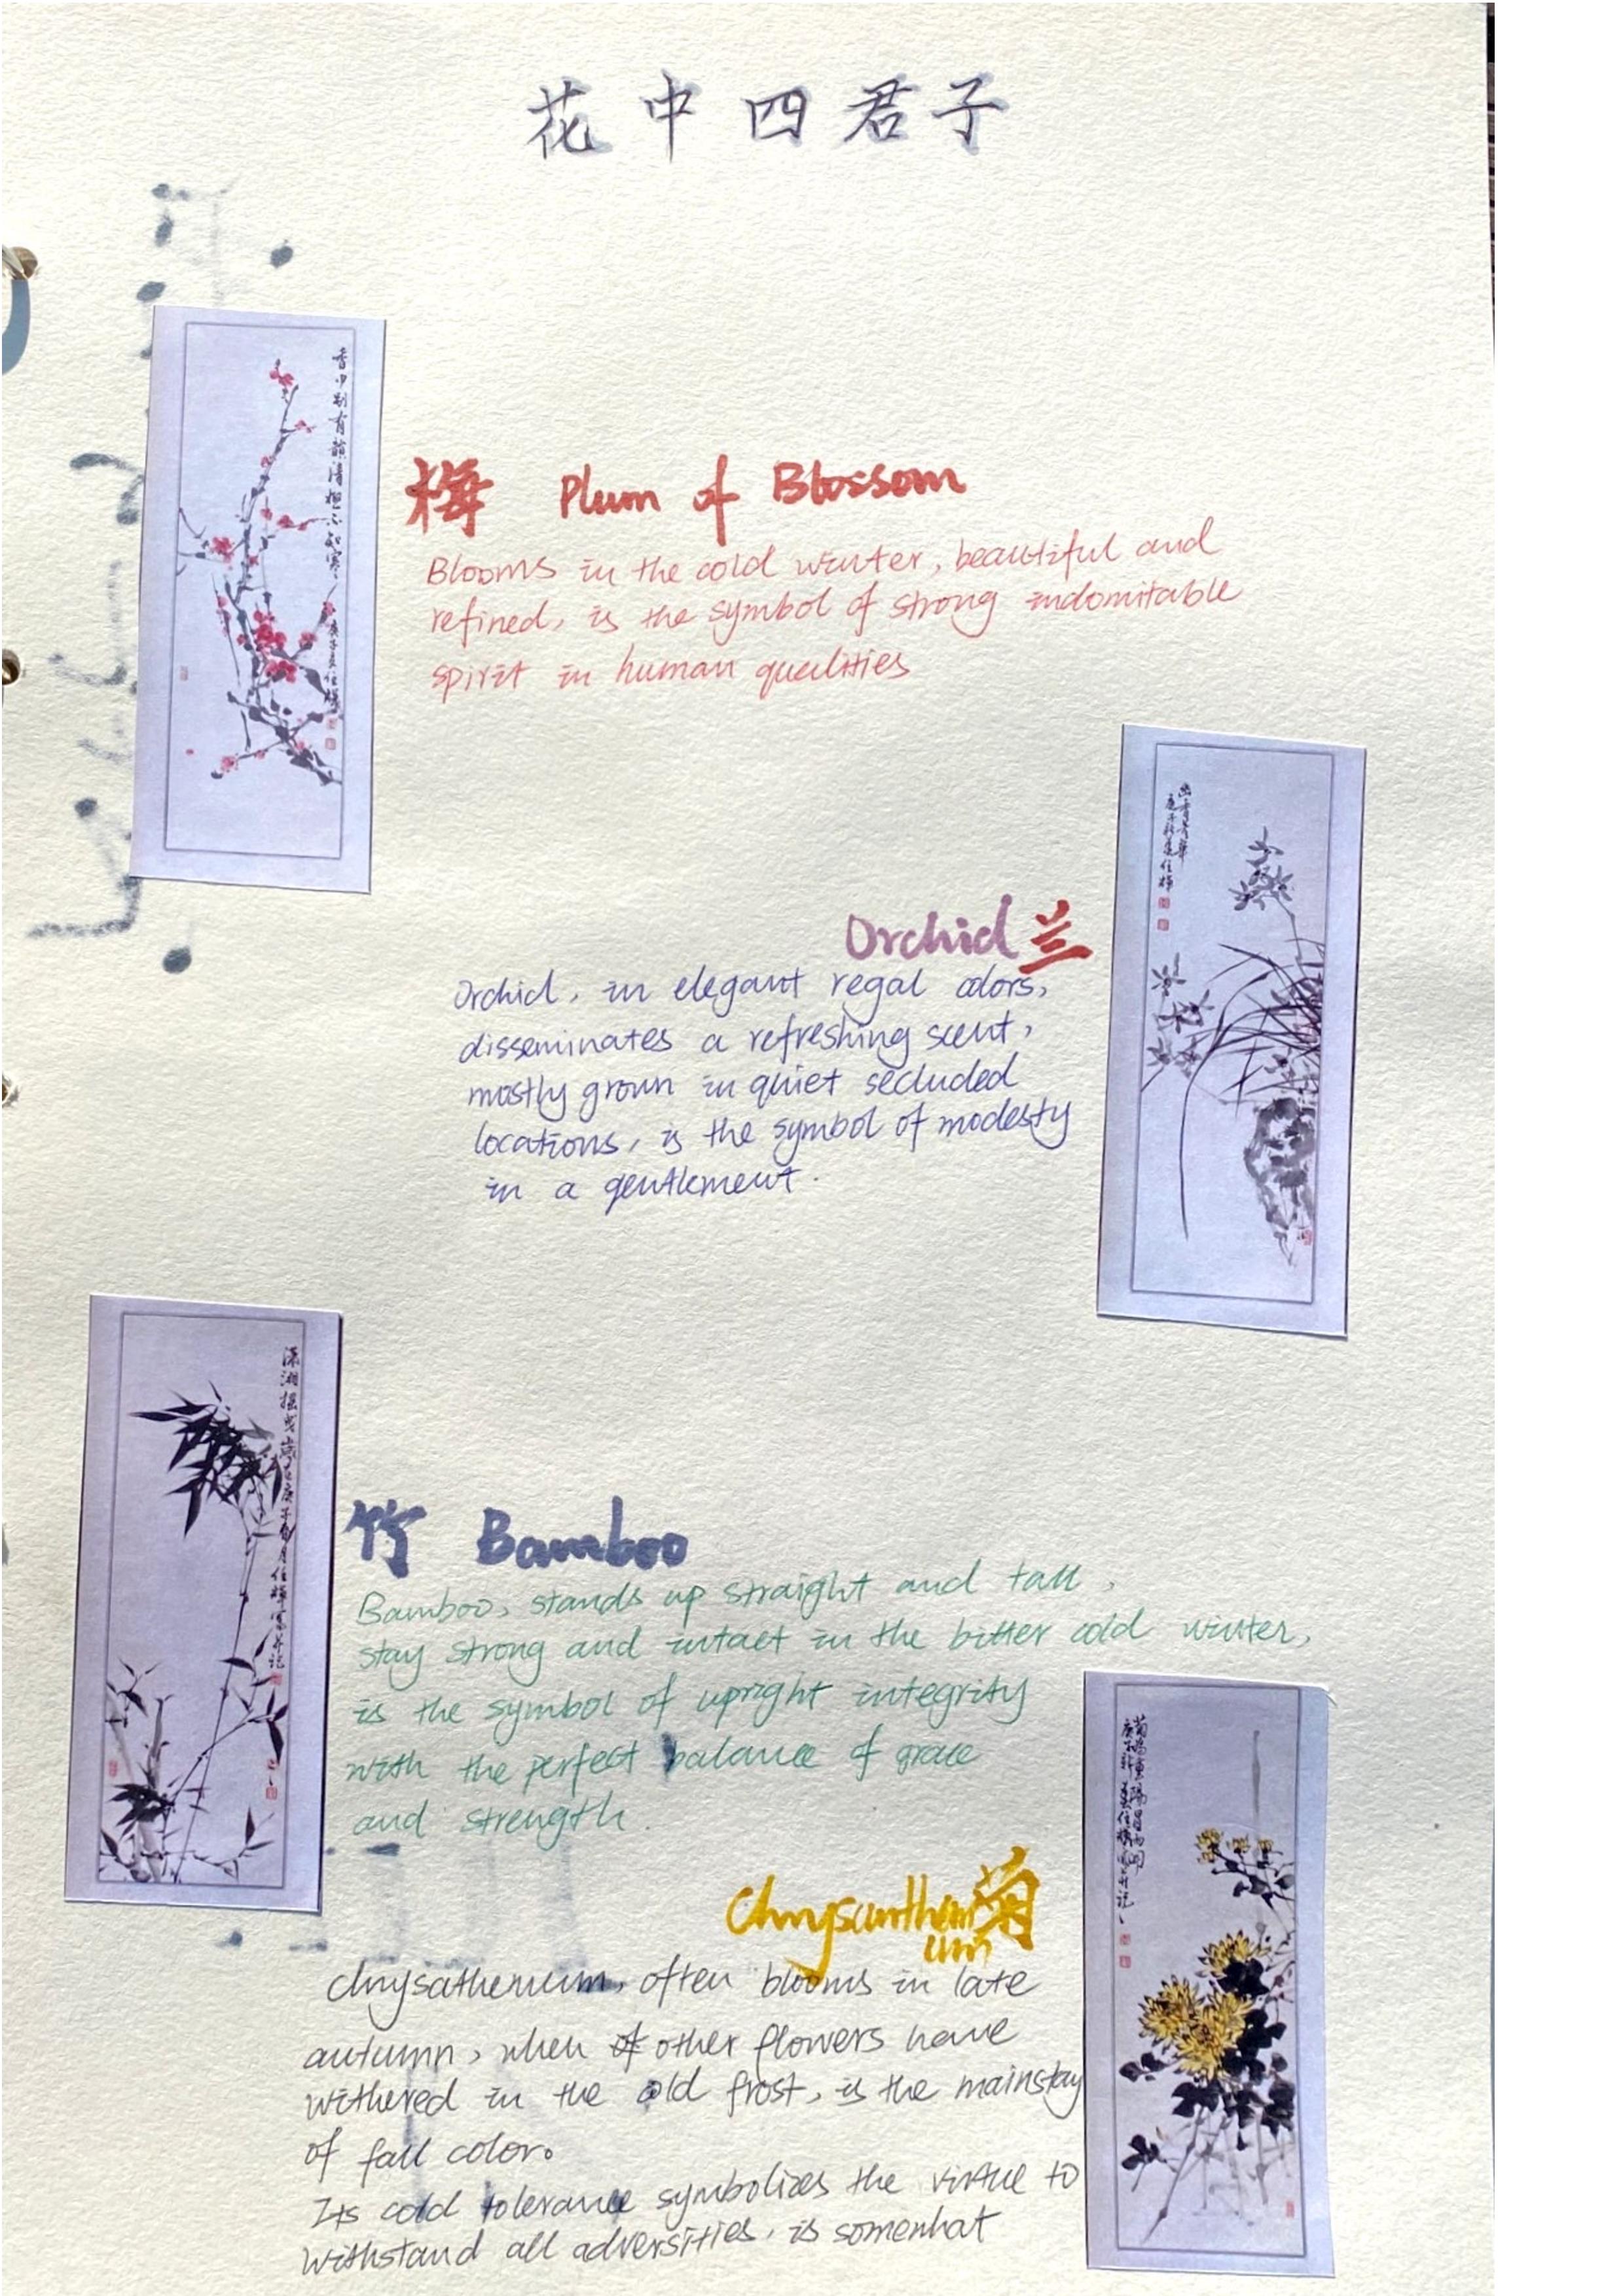 花中四君子
香中别有韻清極不知寒
庚子
梅 Plum of Blossom
Blooms in the cold winter, beautiful and
refined, is the symbol of strong indomitable
spirit in human qualities
幽香
Orchid 兰
Orchid, in elegant regal colors,
disseminates a refreshing scent,
mostly grown in quiet secluded
locations, is the symbol of modesty
in a gentlement.
潇湘摇曳
竹 Bamboo
Bamboo, stands up straight and tall,
stay strong and intact in the bitter cold winter,
is the symbol of upright integrity
with the perfect balance of grace
and strength.
Chrysanthem 菊
um
chrysathemum, often blooms in late
autumn, when other flowers have
withered in the old frost, is the mainstay
of fall color。
Its cold tolerance symbolizes the virtue to
withstand all adversities, is somewhat